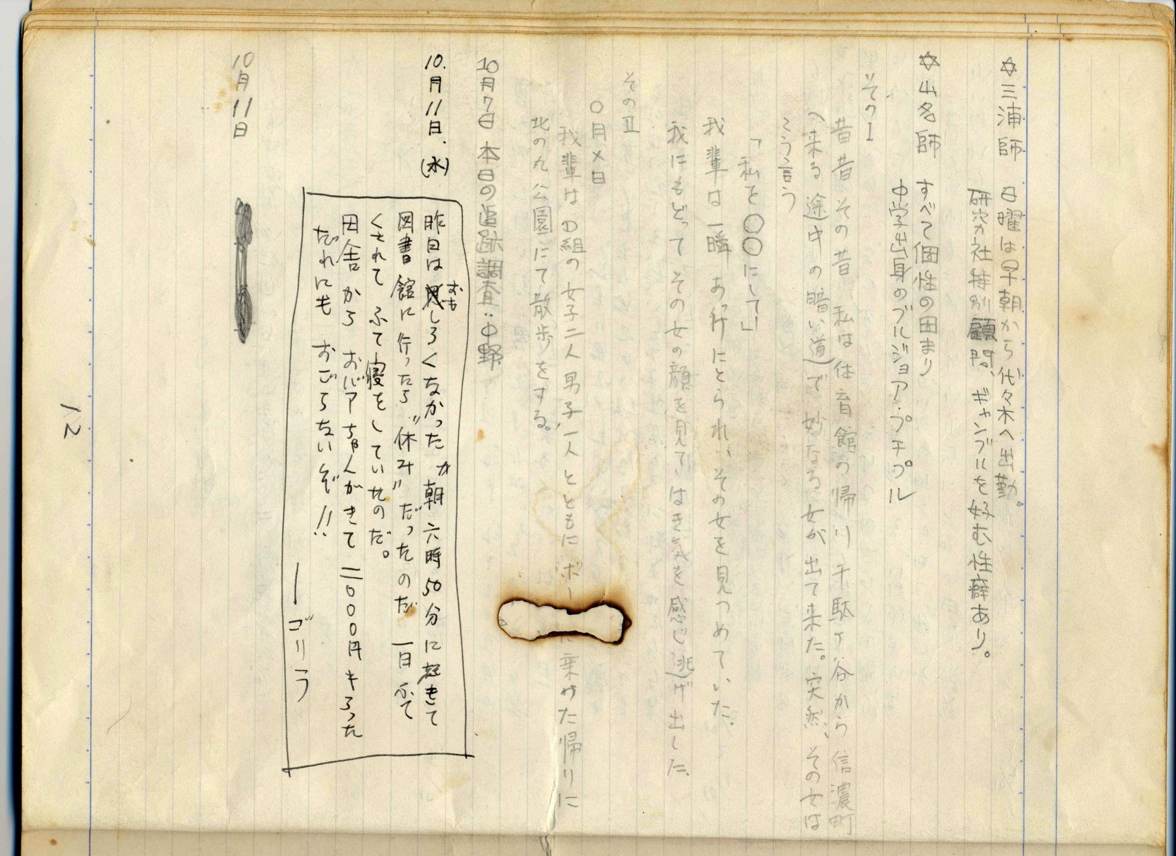 ✡三浦師 日曜は早朝から代々木へ出勤。
研究社特別顧問、ギャンブルを好む性癖あり。
✡山名師 すべて個性の固まり
中学出身のブルジョア・プチブル
その1
昔昔その昔、私は体育館の帰り千駄ヶ谷から信濃町
へ来る途中の暗い道で妙なる女が出て来た。突然、その女は
こう言う
「私を〇〇にして!」
我輩は一瞬あっけにとられ、その女を見つめていた。
我にもどってその女の顔を見て、はき気を感じ逃げ出した。
そのII
〇月×日
我輩はD組の女子二人男子一人とともにボー に乗った帰りに
北の丸公園にて散歩をする。
10月7日 本日の追跡調査:中野
10.月11日.(水)
昨日は おも しろくなかった 朝六時50分に起きて
図書館に行ったら"休み"だったのだ 一日
くされて ふて寝をしていたのだ。
田舎から おバアちゃんがきて 二〇〇〇円 キろった
だれにも おごらないぞ!!
ーゴリラ
10月11日
12